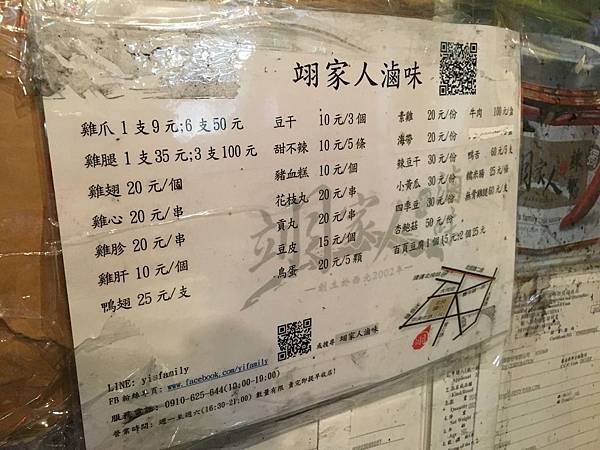 翊家人滷味
雞爪 1支9元;6支50元
雞腿 1支35元;3支100元
雞翅 20元/個
雞心 20元/串
雞胗 20元/串
雞肝 10元/個
鴨翅 25元/支
豆干 10元/3個
甜不辣 10元/5條
豬血糕 10元/個
花枝丸 20元/串
貢丸 20元/串
豆皮 15元/個
鳥蛋 20元/5顆
素雞 20元/份
海帶 20元/份
辣豆干 30元/份
小黃瓜 30元/份
四季豆 30元/份
杏鮑菇 50元/份
百頁豆腐1個15元;2個25元
牛肉 100元/盒
鴨舌 60元/5支
糯米腸 25元/條
無骨雞腿60元/支
翊家人
—創立於西元2002年—
或搜尋 翊家人滷味
LINE: yifamily
FB粉絲專頁: www.facebook.com/yifamily
服務電話: 0910-625-644(10:00-19:00)
營業時間: 週一至週六(16:30-21:00) 數量有限 賣完即提早收店!